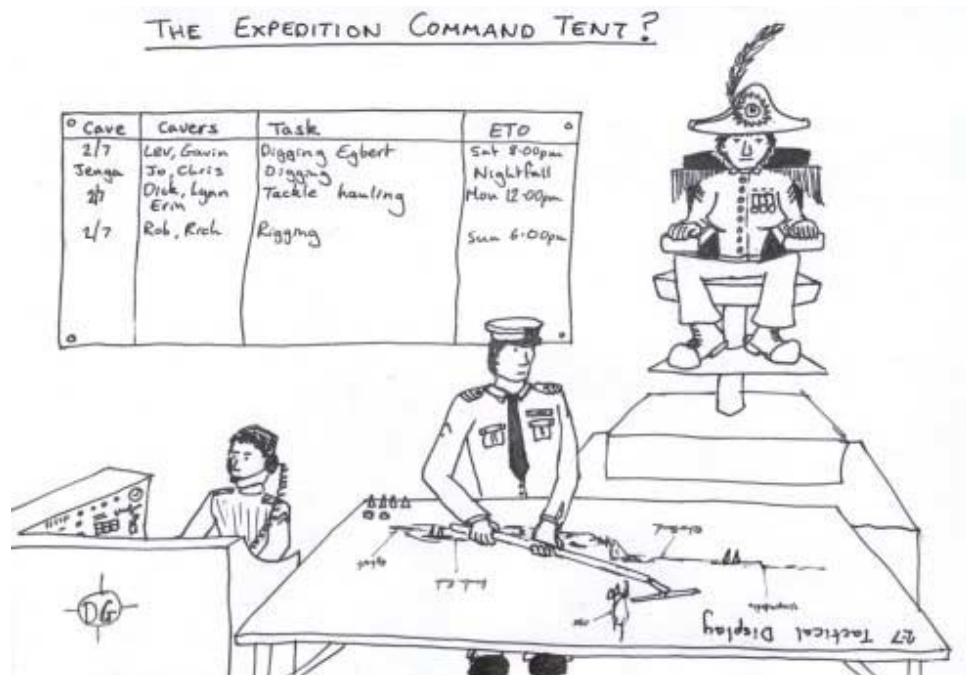 THE EXPEDITION COMMAND TENT?
Cave Cavers Task ETO
2/7 Lev, Gavin Digging Egbert Sat 8:00pm
Jenga Jo, Chris Digging Nightfall
2/7 Dick, Lynn Tackle hauling Mon 12:00pm
Erin
2/7 Rob, Rich Rigging Sun 6:00pm
DG
27 Tactical Display